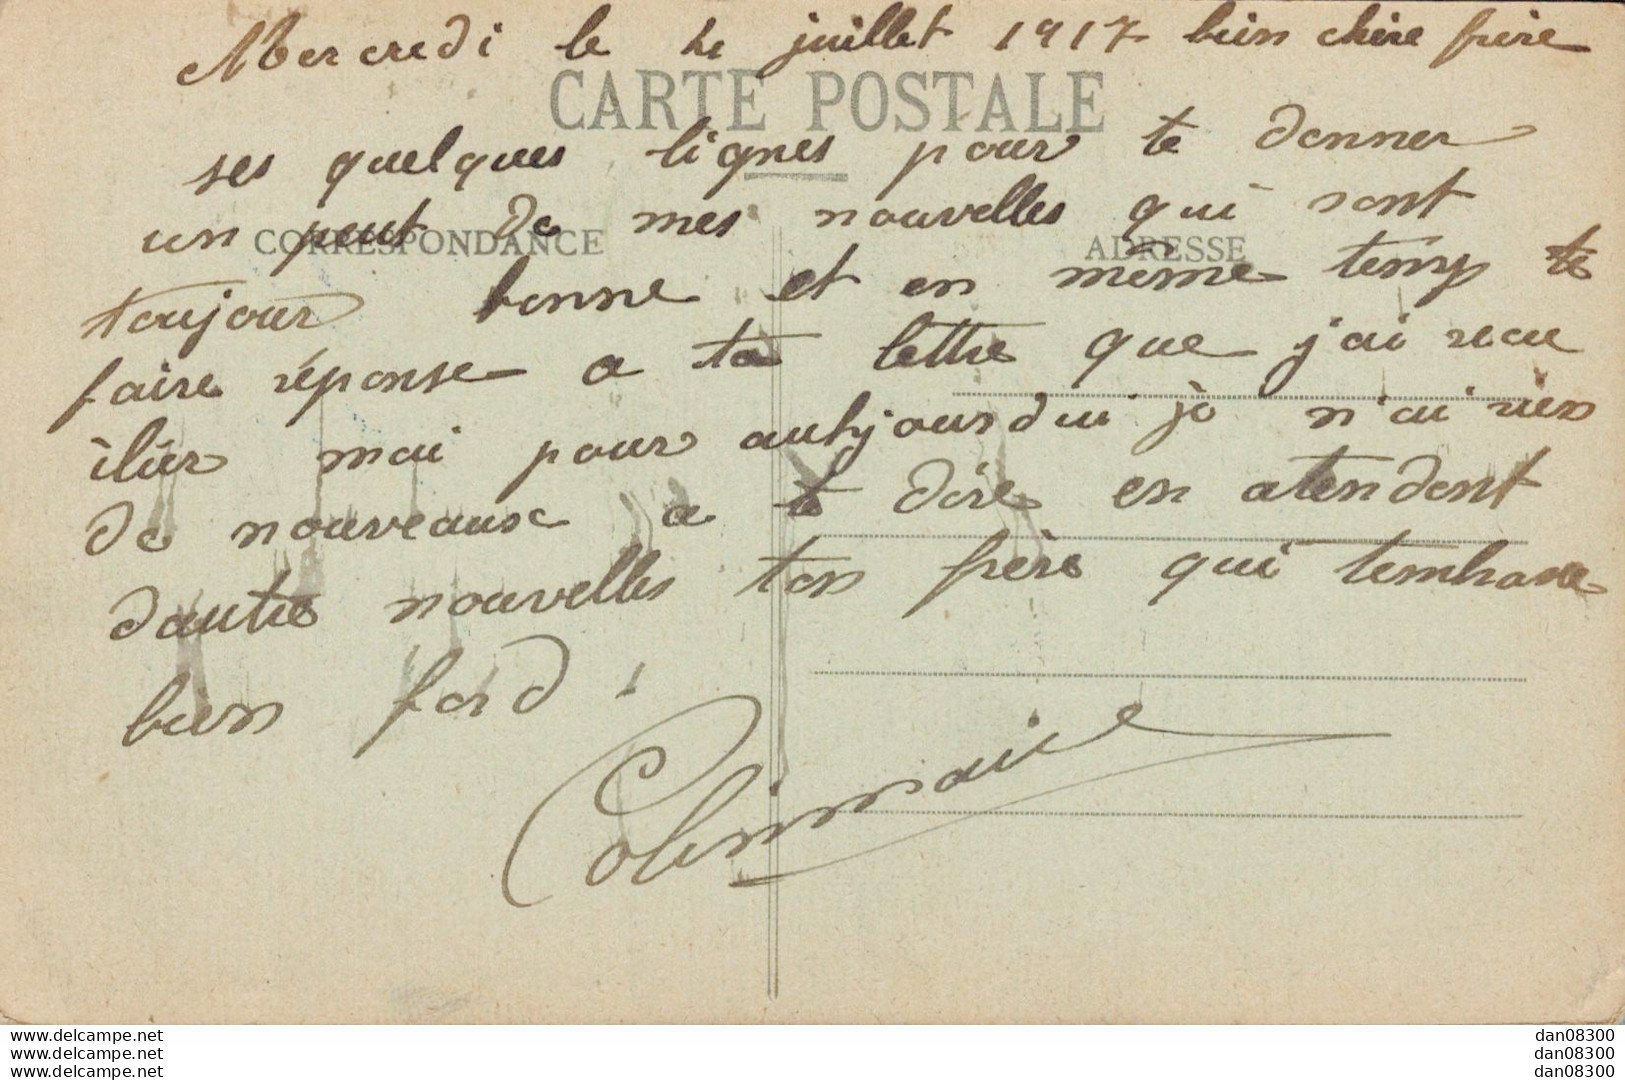 Mercredi le 4 juillet 1917 bien chère frère
CARTE POSTALE
ses quelques lignes pour te donner
un peut de mes nouvelles qui sont
CORRESPONDANCE
ADRESSE
toujour bonne et en même temp te
faire réponse a ta lettre que j'ai recu
ilier mai pour autjourdui je n'ai rien
de nouveaux a te dire en atendent
dautre nouvelles ton frère qui tembrasse
bien ford
www.delcampe.net
www.delcampe.net
www.delcampe.net
dan08300
dan08300
dan08300